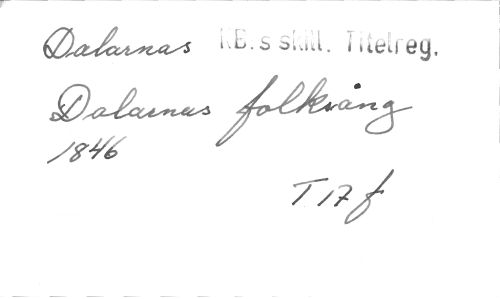 Dalarnas KB.s skill. Titelreg.
Dalarnas folkväng
1846
T 17 f